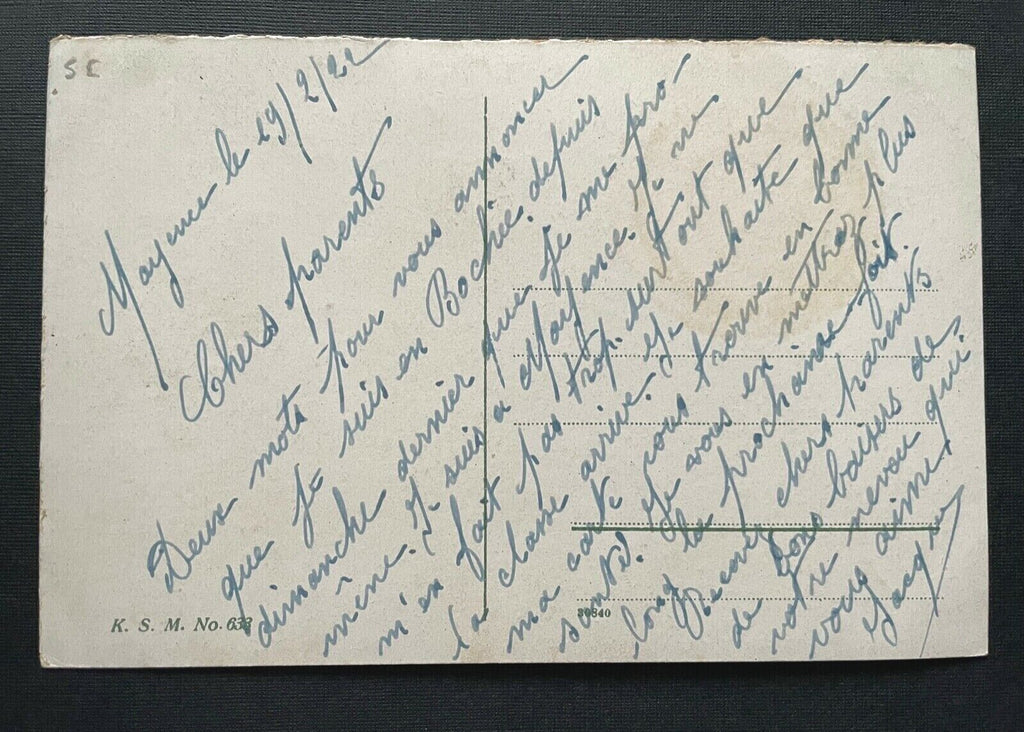 S E
Mayence le 19/2/22
Chers parents
Deux mots pour vous annoncer
que je suis en Bochie depuis
dimanche dernier que je me pro-
mène. Je suis a Mayence. Je ne
m'en fait pas trop. surtout que
la classe arrive. Je souhaite que
ma carte vous trouve en bonne
santé. Je vous en mettrez plus
long la prochaine fois.
Recevez chers parents
de bons baisers de
votre neveu qui
vous aime.
Jacques
K. S. M. No. 633
30840